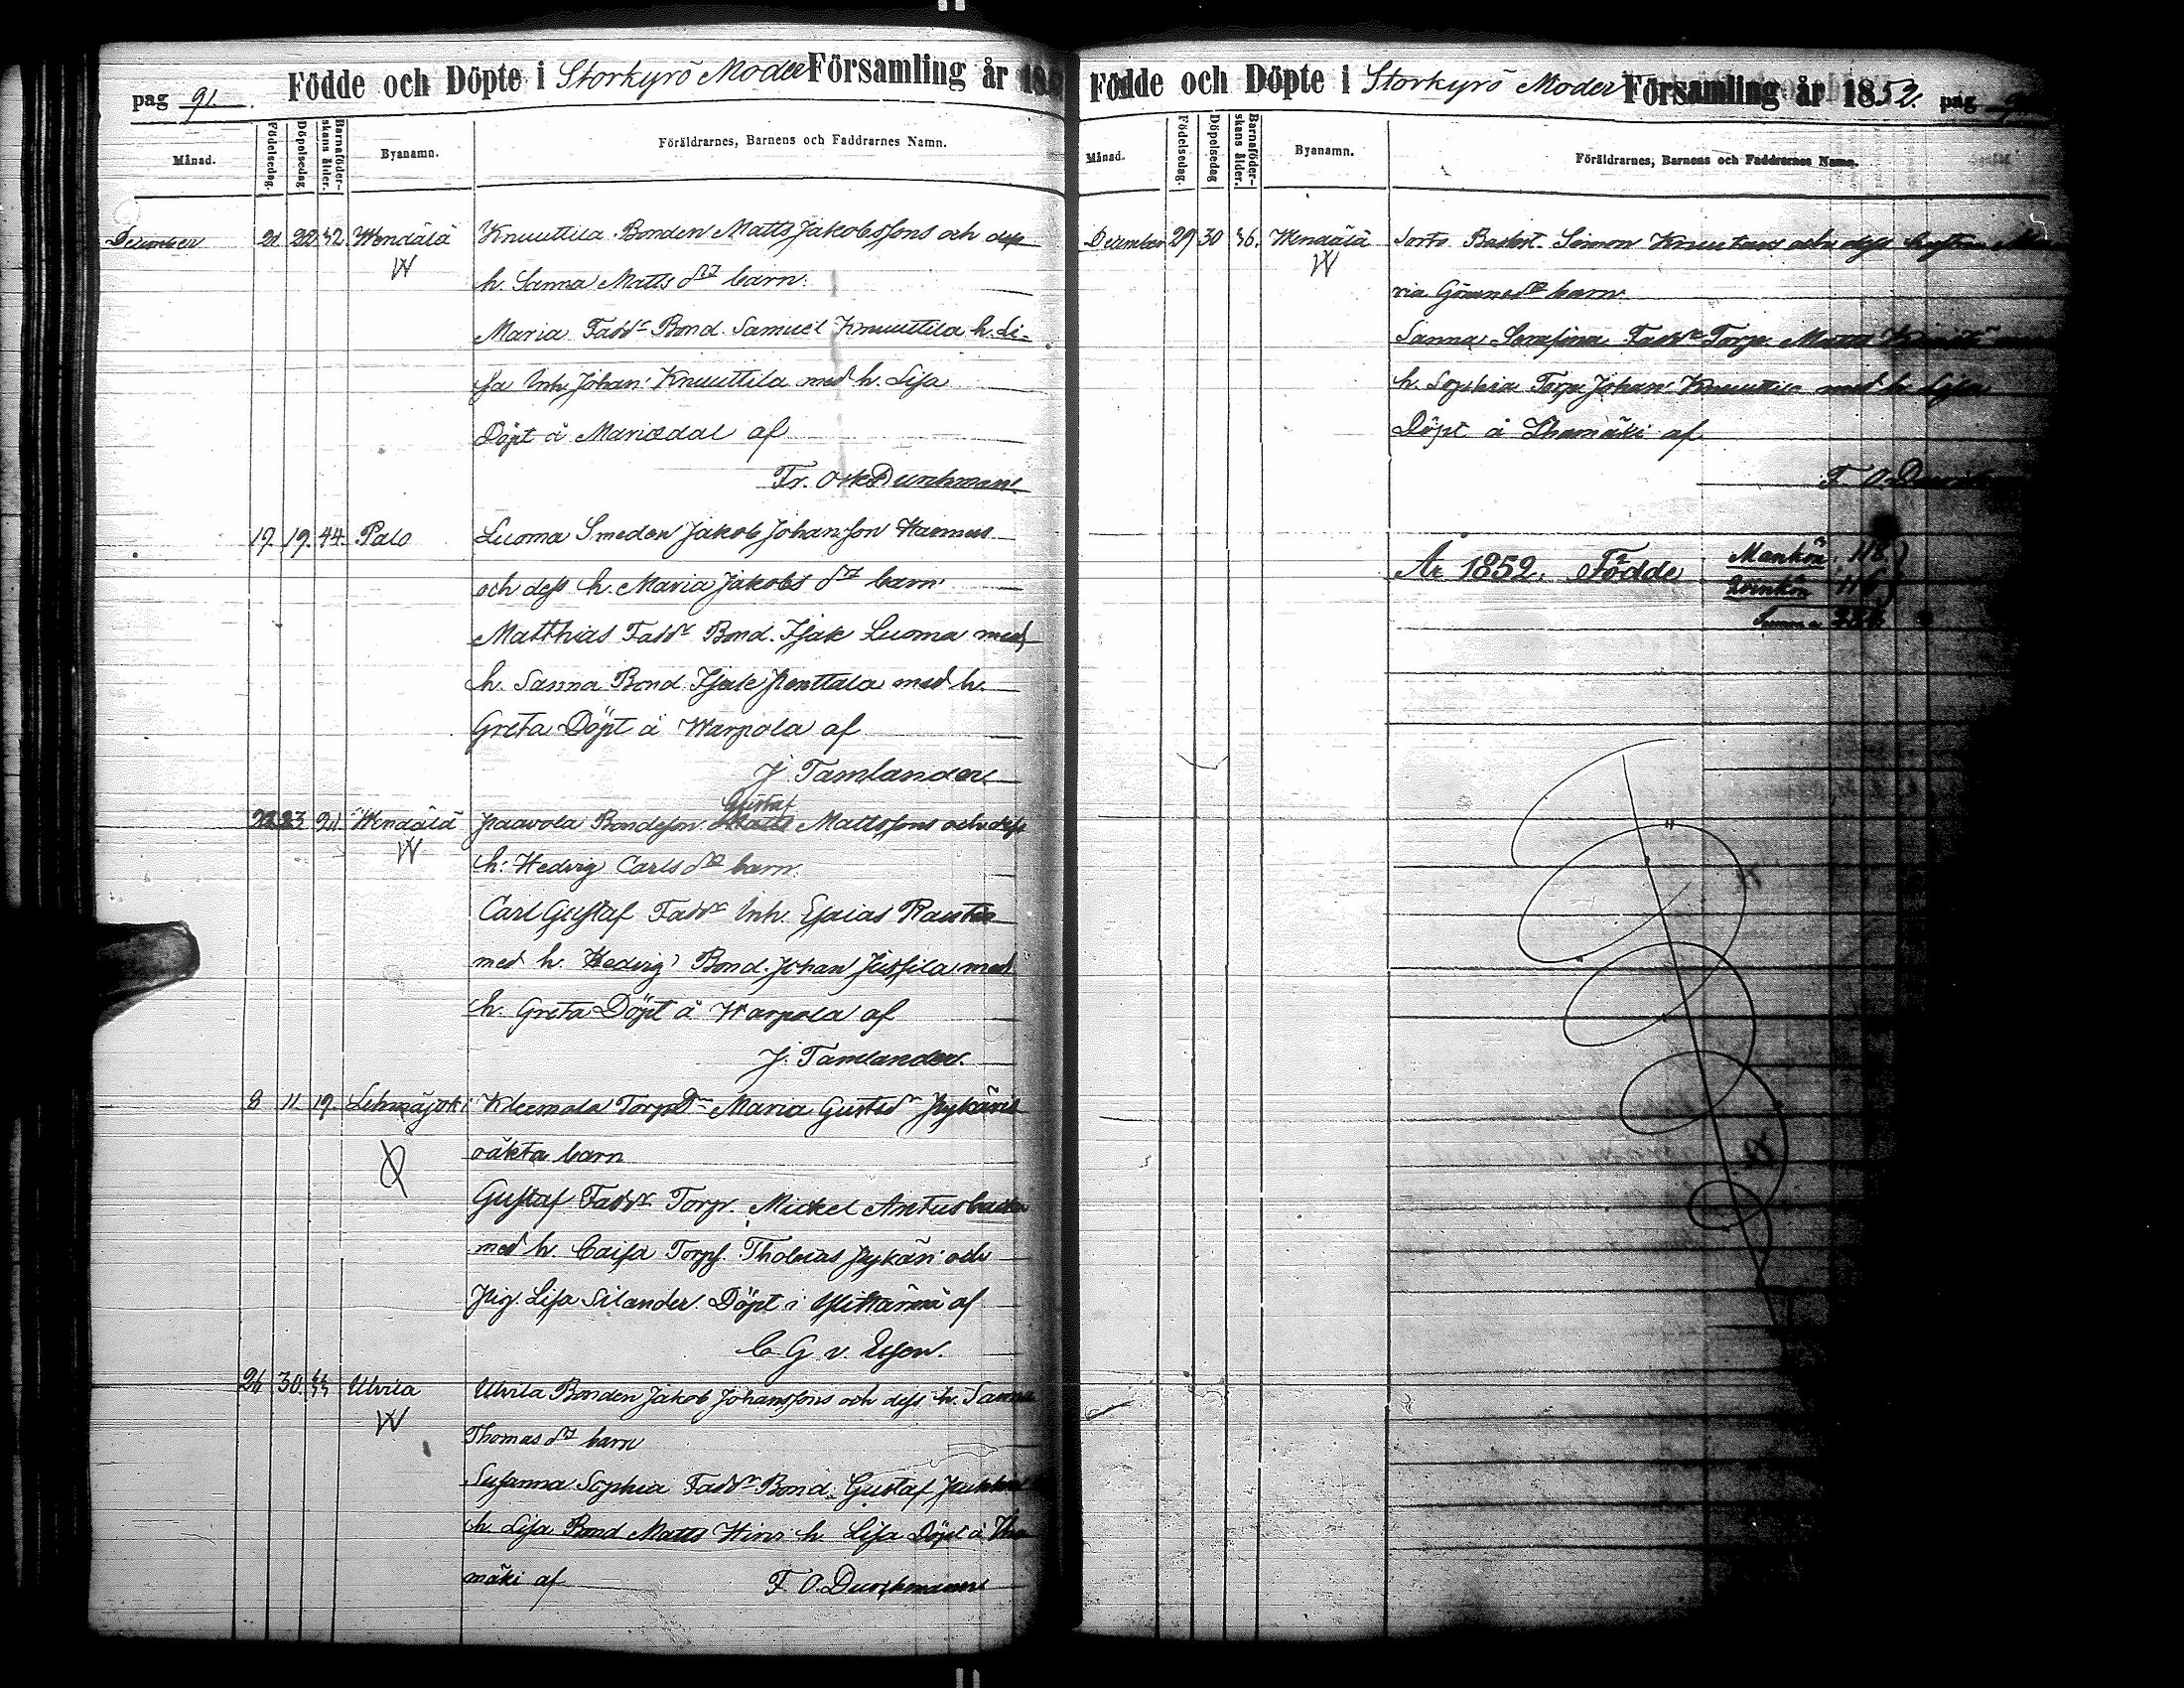 pag 91. Födde och Döpte i Storkyrö Moder Församling år 185
Månad. Födelsedag. Döpelsedag Barnaföderskans ålder. Byanamn. Föräldrarnes, Barnens och Faddrarnes Namn.
December 21 22 32 Wendälä Knuuttila Bonden Matts Jakobssons och dess
W
h. Sanna Mattsdr barn.
Maria Faddr Bond. Samuel Knuuttila h. Li-
sa Inh. Johan Knuuttila med h. Lisa
Döpt å Mariedal af
Fr. Osk Durchman.
19. 19. 44. Palo Luoma Smeden Jakob Johansson
och dess h. Maria Jakobsdr barn
Matthias Faddr Bond. Isak Luoma med
h. Sanna Bond. Isak Penttala med h.
Greta Döpt å Warpola af
J. Tamlander
Gustaf
22 23 21 Wendälä Paavola Bondeson Matts Mattssons och dess
W
h. Hedvig Carlsdr barn.
Carl Gustaf Faddr Inh. Esaias Rautio
med h. Hedvig Bond. Johan Jussila med
h. Greta Döpt å Warpola af
J. Tamlander.
8 11. 19. Lehmäjoki Kleemola TorpDr Maria Gustsdr Pykäris
oäkta barn
Gustaf Faddr Torp. Mickel Antusbacka
med h. Caisa Torps. Thobias Pykäri och
Pig. Lisa Silander. Döpt i Ylihärmä af
C G v. Essen.
26 30. 44 Ulvila Ulvila Bonden Jakob Johanssons och dess h. Sanna
W
Thomasdr barn
Susanna Sophia Faddr Bond. Gustaf
h. Lisa Bond Matts h. Lisa Döpt å Iha
mäki af F. O. Durchman
Födde och Döpte i Storkyrö Moder Församling år 1852. pag
Månad. Födelsedag. Döpelsedag Barnaföderskans ålder. Byanamn. Föräldrarnes, Barnens och Faddrarnes Namn.
December 29 30 36. Wendälä Simon Knuutas och dess hustru Ma
W
ria barn
Sanna Serafina Faddr Torp. Matts
h. Sophia Torp. Johan Knuuttila med h. Lisa
Döpt å Ihamäki af
F. O. Durchman
År 1852. Födde Mankön 118
Qvinkön 116
Summa 234